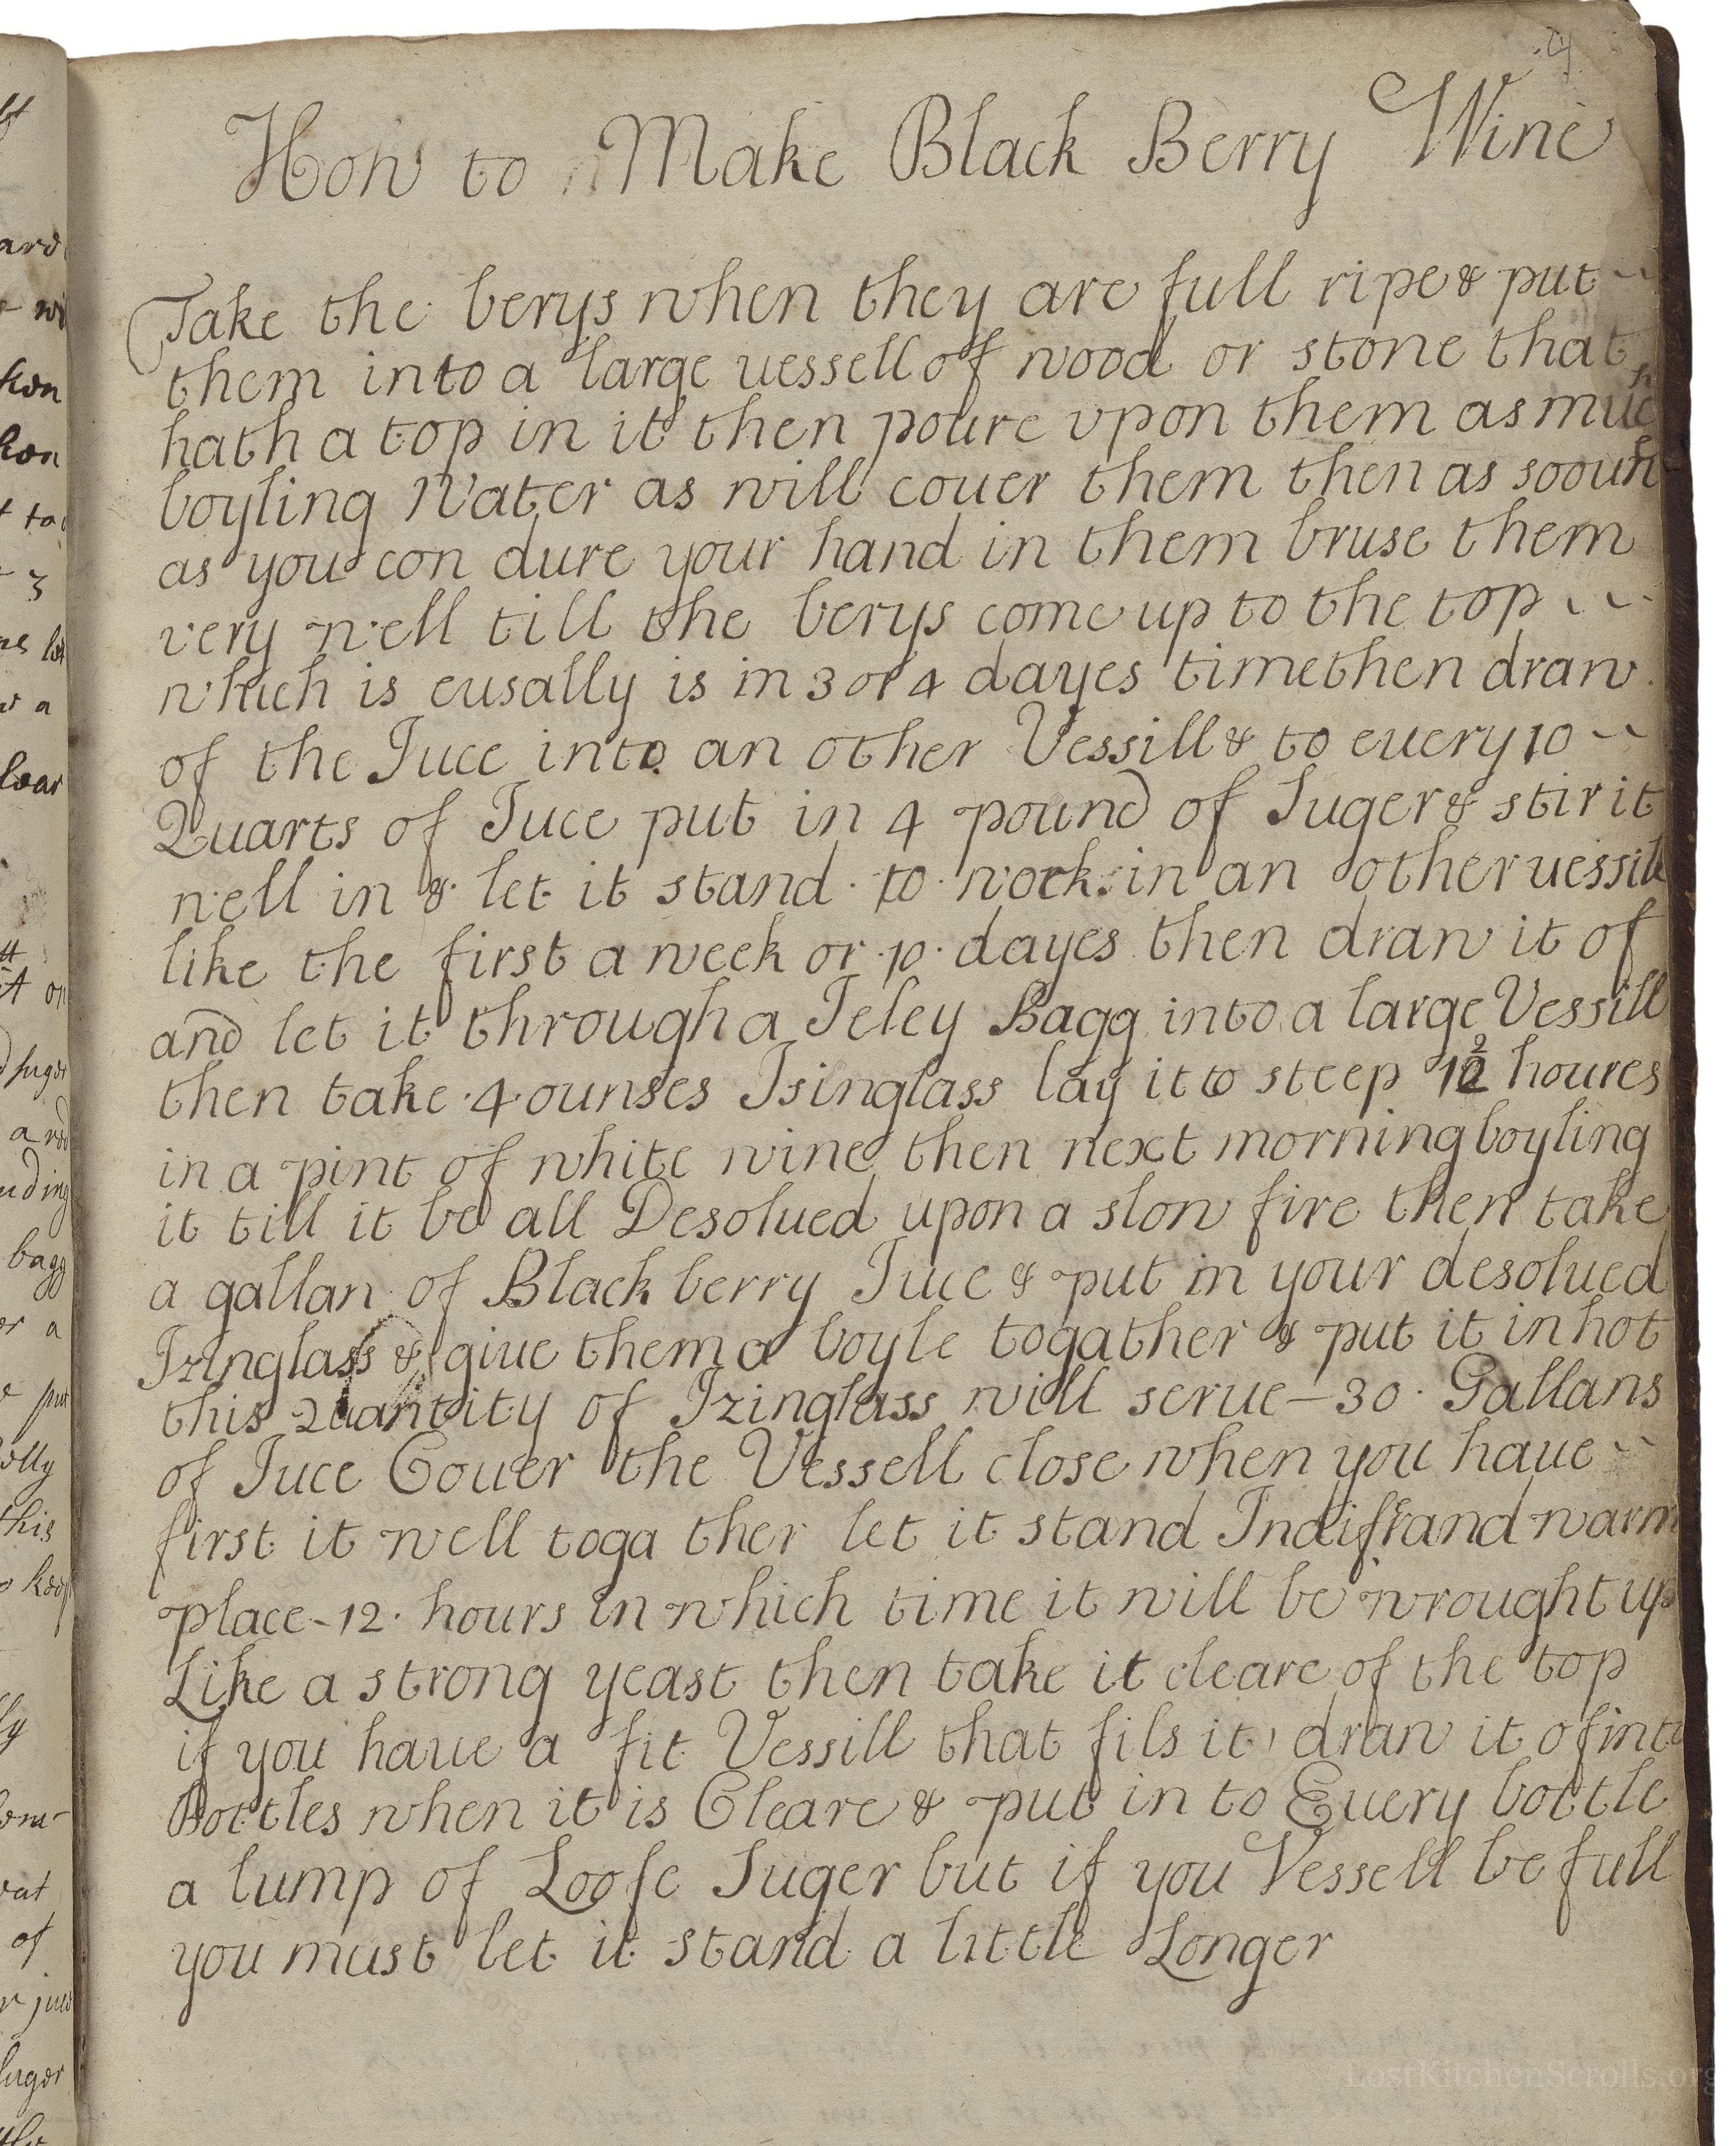 How to Make Black Berry Wine
Take the berys when they are full ripe & put
them into a large uessell of wood or stone that
hath a top in it then poure vpon them as much
boyling Water as will couer them then as sooun
as you con dure your hand in them bruse them
very well till the berys come up to the top
which is eusally is in 3 or 4 dayes time then draw
of the Juce into an other Vessill & to euery 10
Quarts of Juce put in 4 pound of Suger & stir it
well in & let it stand to work in an other uessill
like the first a week or 10 dayes then draw it of
and let it through a Jeley Bagg into a large Vessill
then take 4 ounses Isinglass lay it to steep 12 houres
in a pint of white wine then next morning boyling
it till it be all Desolued upon a slow fire then take
a gallan of Black berry Juce & put in your desolued
Izinglass & giue them a boyle togather & put it in hot
this Quantity of Izinglass will serue – 30 Gallans
of Juce Couer the Vessell close when you haue
first it well toga ther let it stand Indifrand warm
place - 12 hours in which time it will be wrought up
Like a strong yeast then take it cleare of the top
if you haue a fit Vessill that fils it draw it of into
Bottles when it is Cleare & put in to Euery bottle
a lump of Loofe Suger but if you Vessell be full
you must let it stand a little Longer
LostKitchenScrolls.org